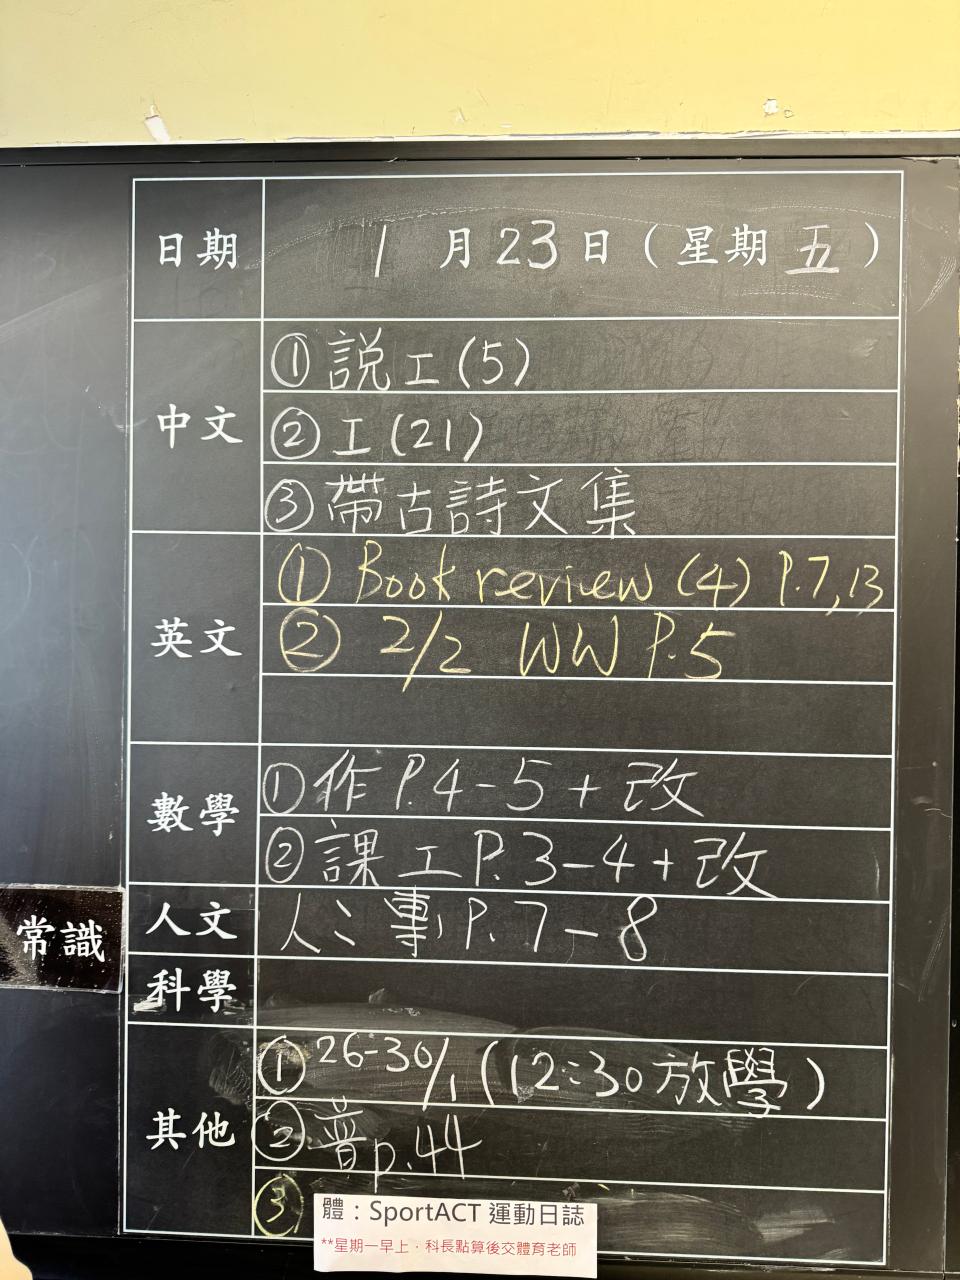 日期 1月23日(星期五)
中文
①説工(5)
②工(21)
③帶古詩文集
英文
① Book review (4) P.7,13
② 2/2 WW P.5
數學
①作P.4-5+改
②課工P.3-4+改
常識
人文 人 專 P.7-8
科學
其他
① 26-30/1 (12:30放學)
②音p.44
③
體：SportACT 運動日誌
**星期一早上，科長點算後交體育老師